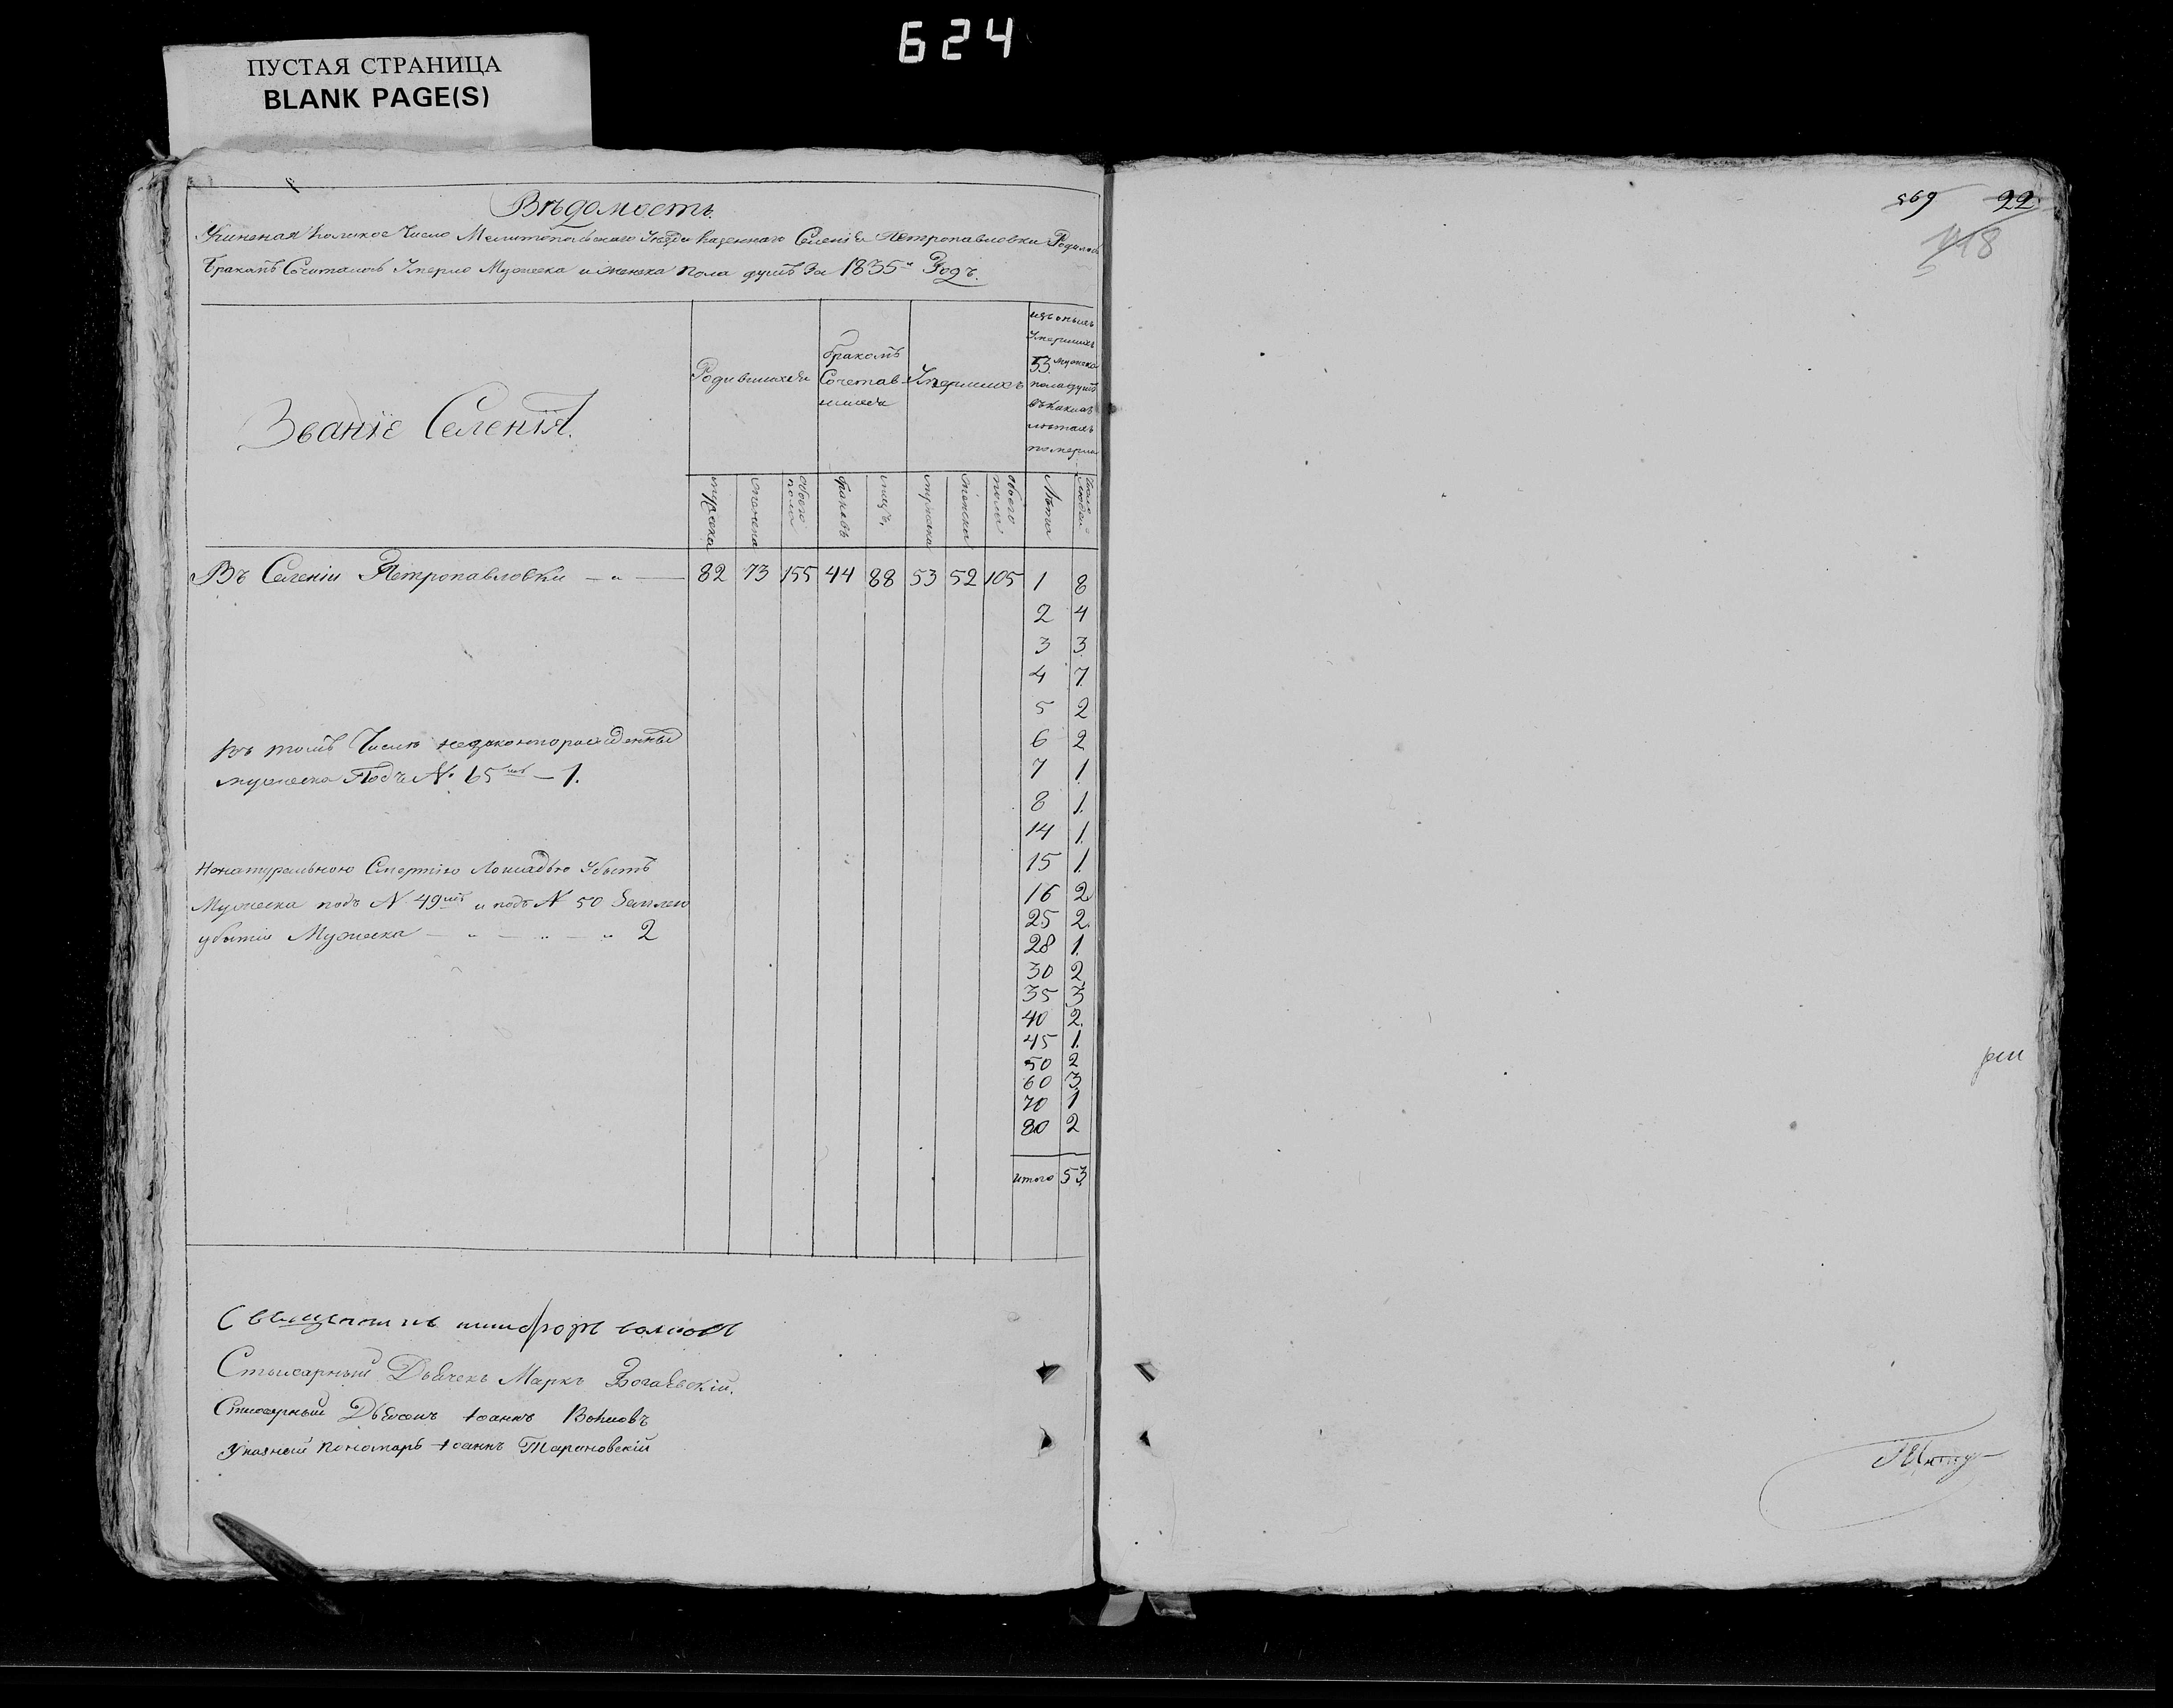 624
ПУСТАЯ СТРАНИЦА
BLANK PAGE(S)
Вѣдомость.
Учиненая Коликое Число Мелитопольскаго Уезда Казеннаго Селенія Петропавловки Родилось
Бракомъ Считалось Умерло Мужеска и женска пола душъ За 1835й Годъ.
Званіе Селенія.
Родившихся
бракомъ
Сочетав-
шихся
Умершихъ
изъ оныхъ
Умершихъ
53 мужеска
пола душъ
въ какихъ
летахъ
померли
мужеска
женска
обоего пола
браковъ
лицъ
мужеска
женска
обоего пола
Лѣта
Число людей
Въ Селеніи Петропавловки — „ — 82 73 155 44 88 53 52 105 1 8
2 4
3 3.
4 7.
5 2
6 2
7 1.
8 1.
14 1.
15 1.
16 2
25 2.
28 1.
30 2
35 3
40 2.
45 1.
50 2
60 3
70 1
80 2
итого 53
Въ томъ Числѣ незаконнорожденный
мужеска Подъ № 65мъ — 1.
Ненатуральною Смертію Лошадью Убитъ
Мужеска подъ № 49мъ и подъ № 50 Землею
убитій Мужеска — „ — „ — „ 2
Священникъ
Стихарный Дьячекъ Маркъ Богаевскій.
Стихарный Дьячокъ Іоаннъ
Указный Пономарь Іоаннъ Тарановскій
569 22
118